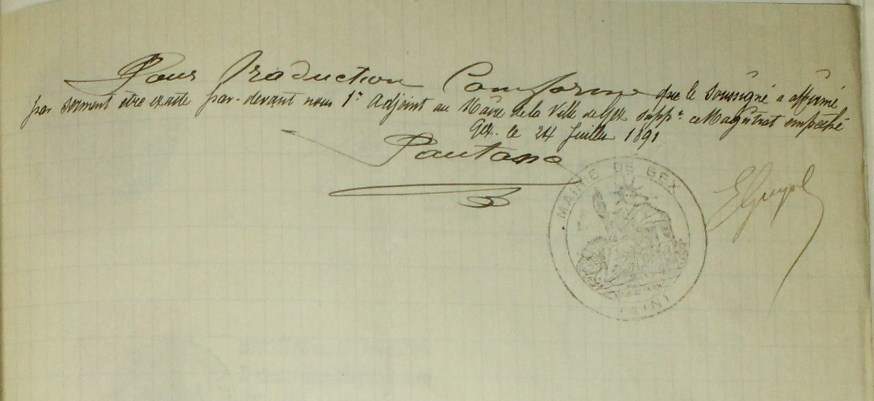 Pour Traduction Conforme que le soussigné a affirmé
par serment être exacte par-devant nous 1er Adjoint au Maire de la Ville de Gex supp.t ce Magistrat empêché
Gex, le 24 Juillet 1891
Pautano
MAIRIE DE GEX
(AIN)